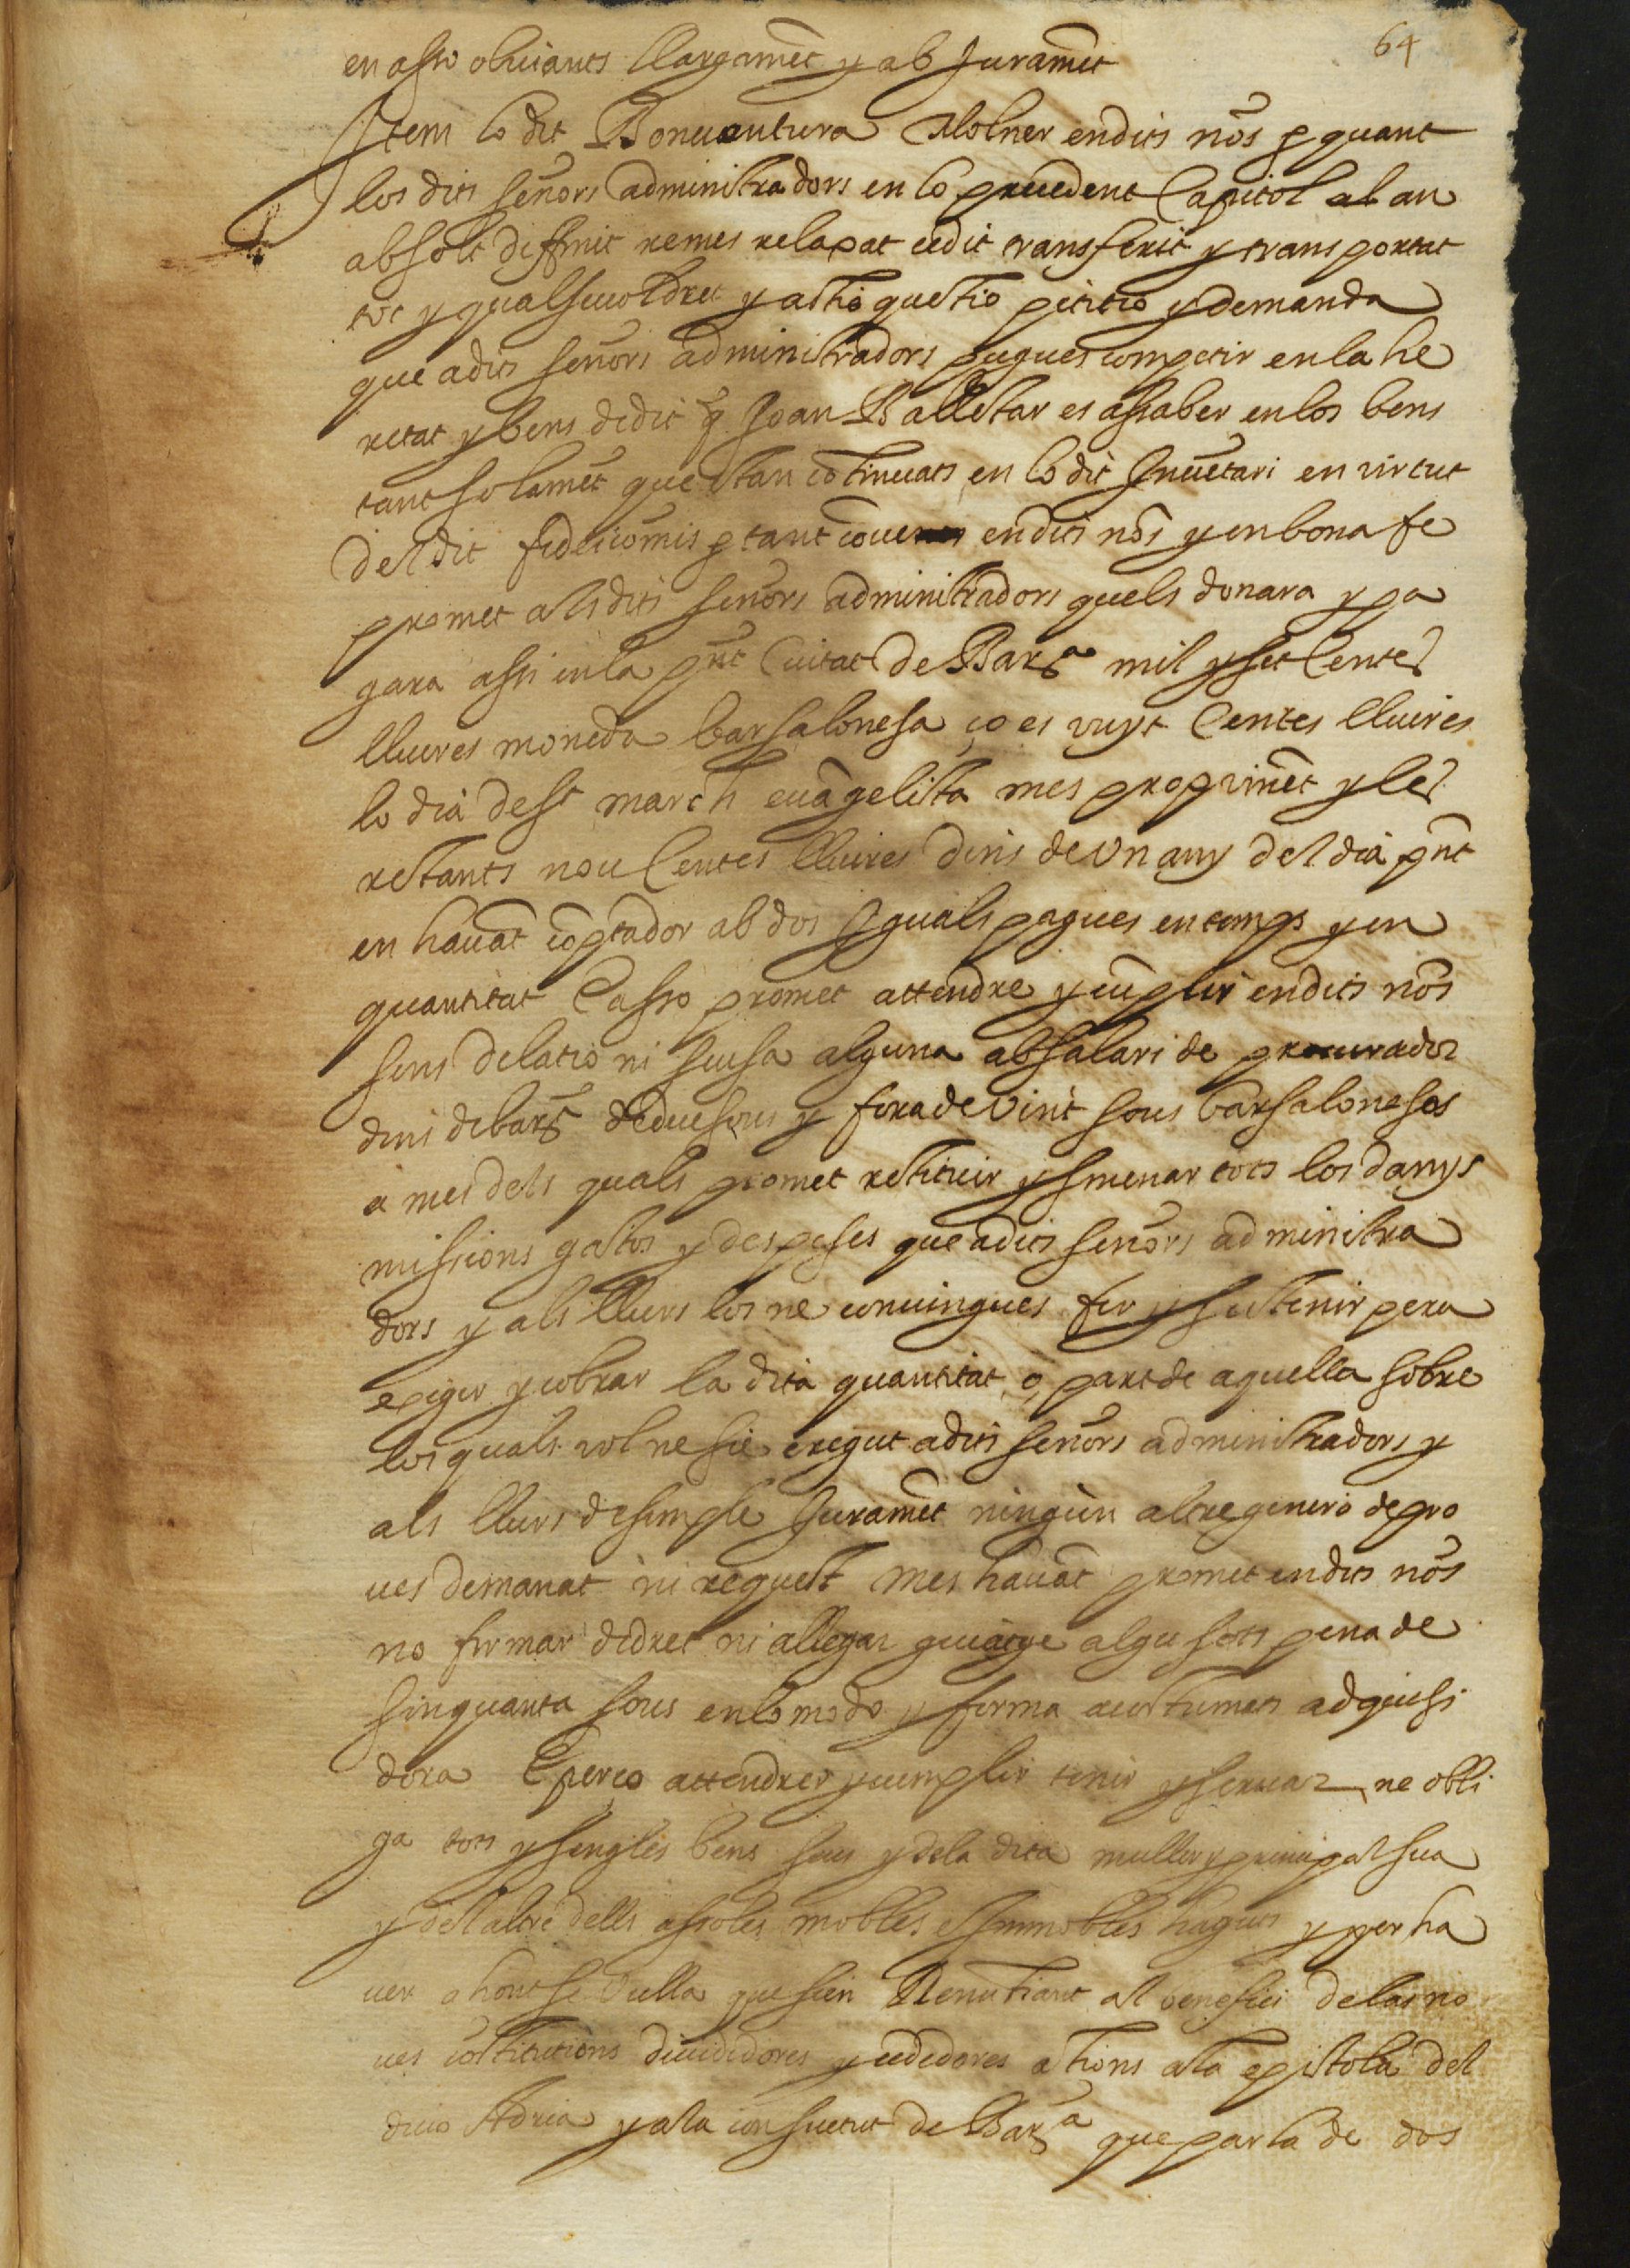 64
en asso obuiants llargamẽt y ab Juramẽt
Item lo dit Bonauentura Molner endits nõs p quant
los dits señors administradors en lo precedent Capitol al an
absolt diffinit remes relaxat cedit transferit y transportat
tot y qualseuol dret y actio questio petitio y demanda
que adits señors administradors pugues competir en la he
retat y bens de dit q̃ Joan Ballestar es assaber en los bens
tant solamẽt que stan cõtinuats en lo dit Inuẽtari en virtut
del dit fideicõmis p tant cõue endits nõs y en bona fe
promet als dits señors administradors quels donara y pa
gara assi en la pñt Ciutat de Barª mil y set Centes
lliures moneda barsalonesa ço es vuyt Centes lliures
lo dia de st march euãgelista mes propvinẽt y les
restants nou Centes lliures dins de vn any del dia pñt
en hauãt cõptador ab dos Iguals pagues en temps y en
quantitat E asso promet attendre y cũplir endits nõs
sens delatio ni scusa alguna ab salari de procurador
dins de barª de deu sous y fora de vint sous barsalonesos
a mes dels quals promet restituir y smenar tots los danys
missions gastos y despeses que adits señors administra
dors y als llurs los ne conuingues fer y sustenir pera
exigir y cobrar la dita quantitat o part de aquella sobre
los quals vol ne sie cregut adits señors administradors y
als llurs de simple Juramẽt ningun altre genero de pro
ues demanat ni request mes hauãt promet endits nõs
no firmar de dret ni allegar guiatge algu sots pena de
sinquanta sous en lo modo y forma acostumats adquisi
dora E perço attendrer y cumplir tenir y seruar ne obli
ga tots y sengles bens seus y dela dita muller y principal sua
y del altre dells assoles mobles e Immobles haguts y per ha
uer ahont se vulla que sien Renuntiant al benefici de las no
ues cõstitutions diuididores y cedidores actions ala epistola del
diuo Adria y ala consuetut de Barª que parla de dos